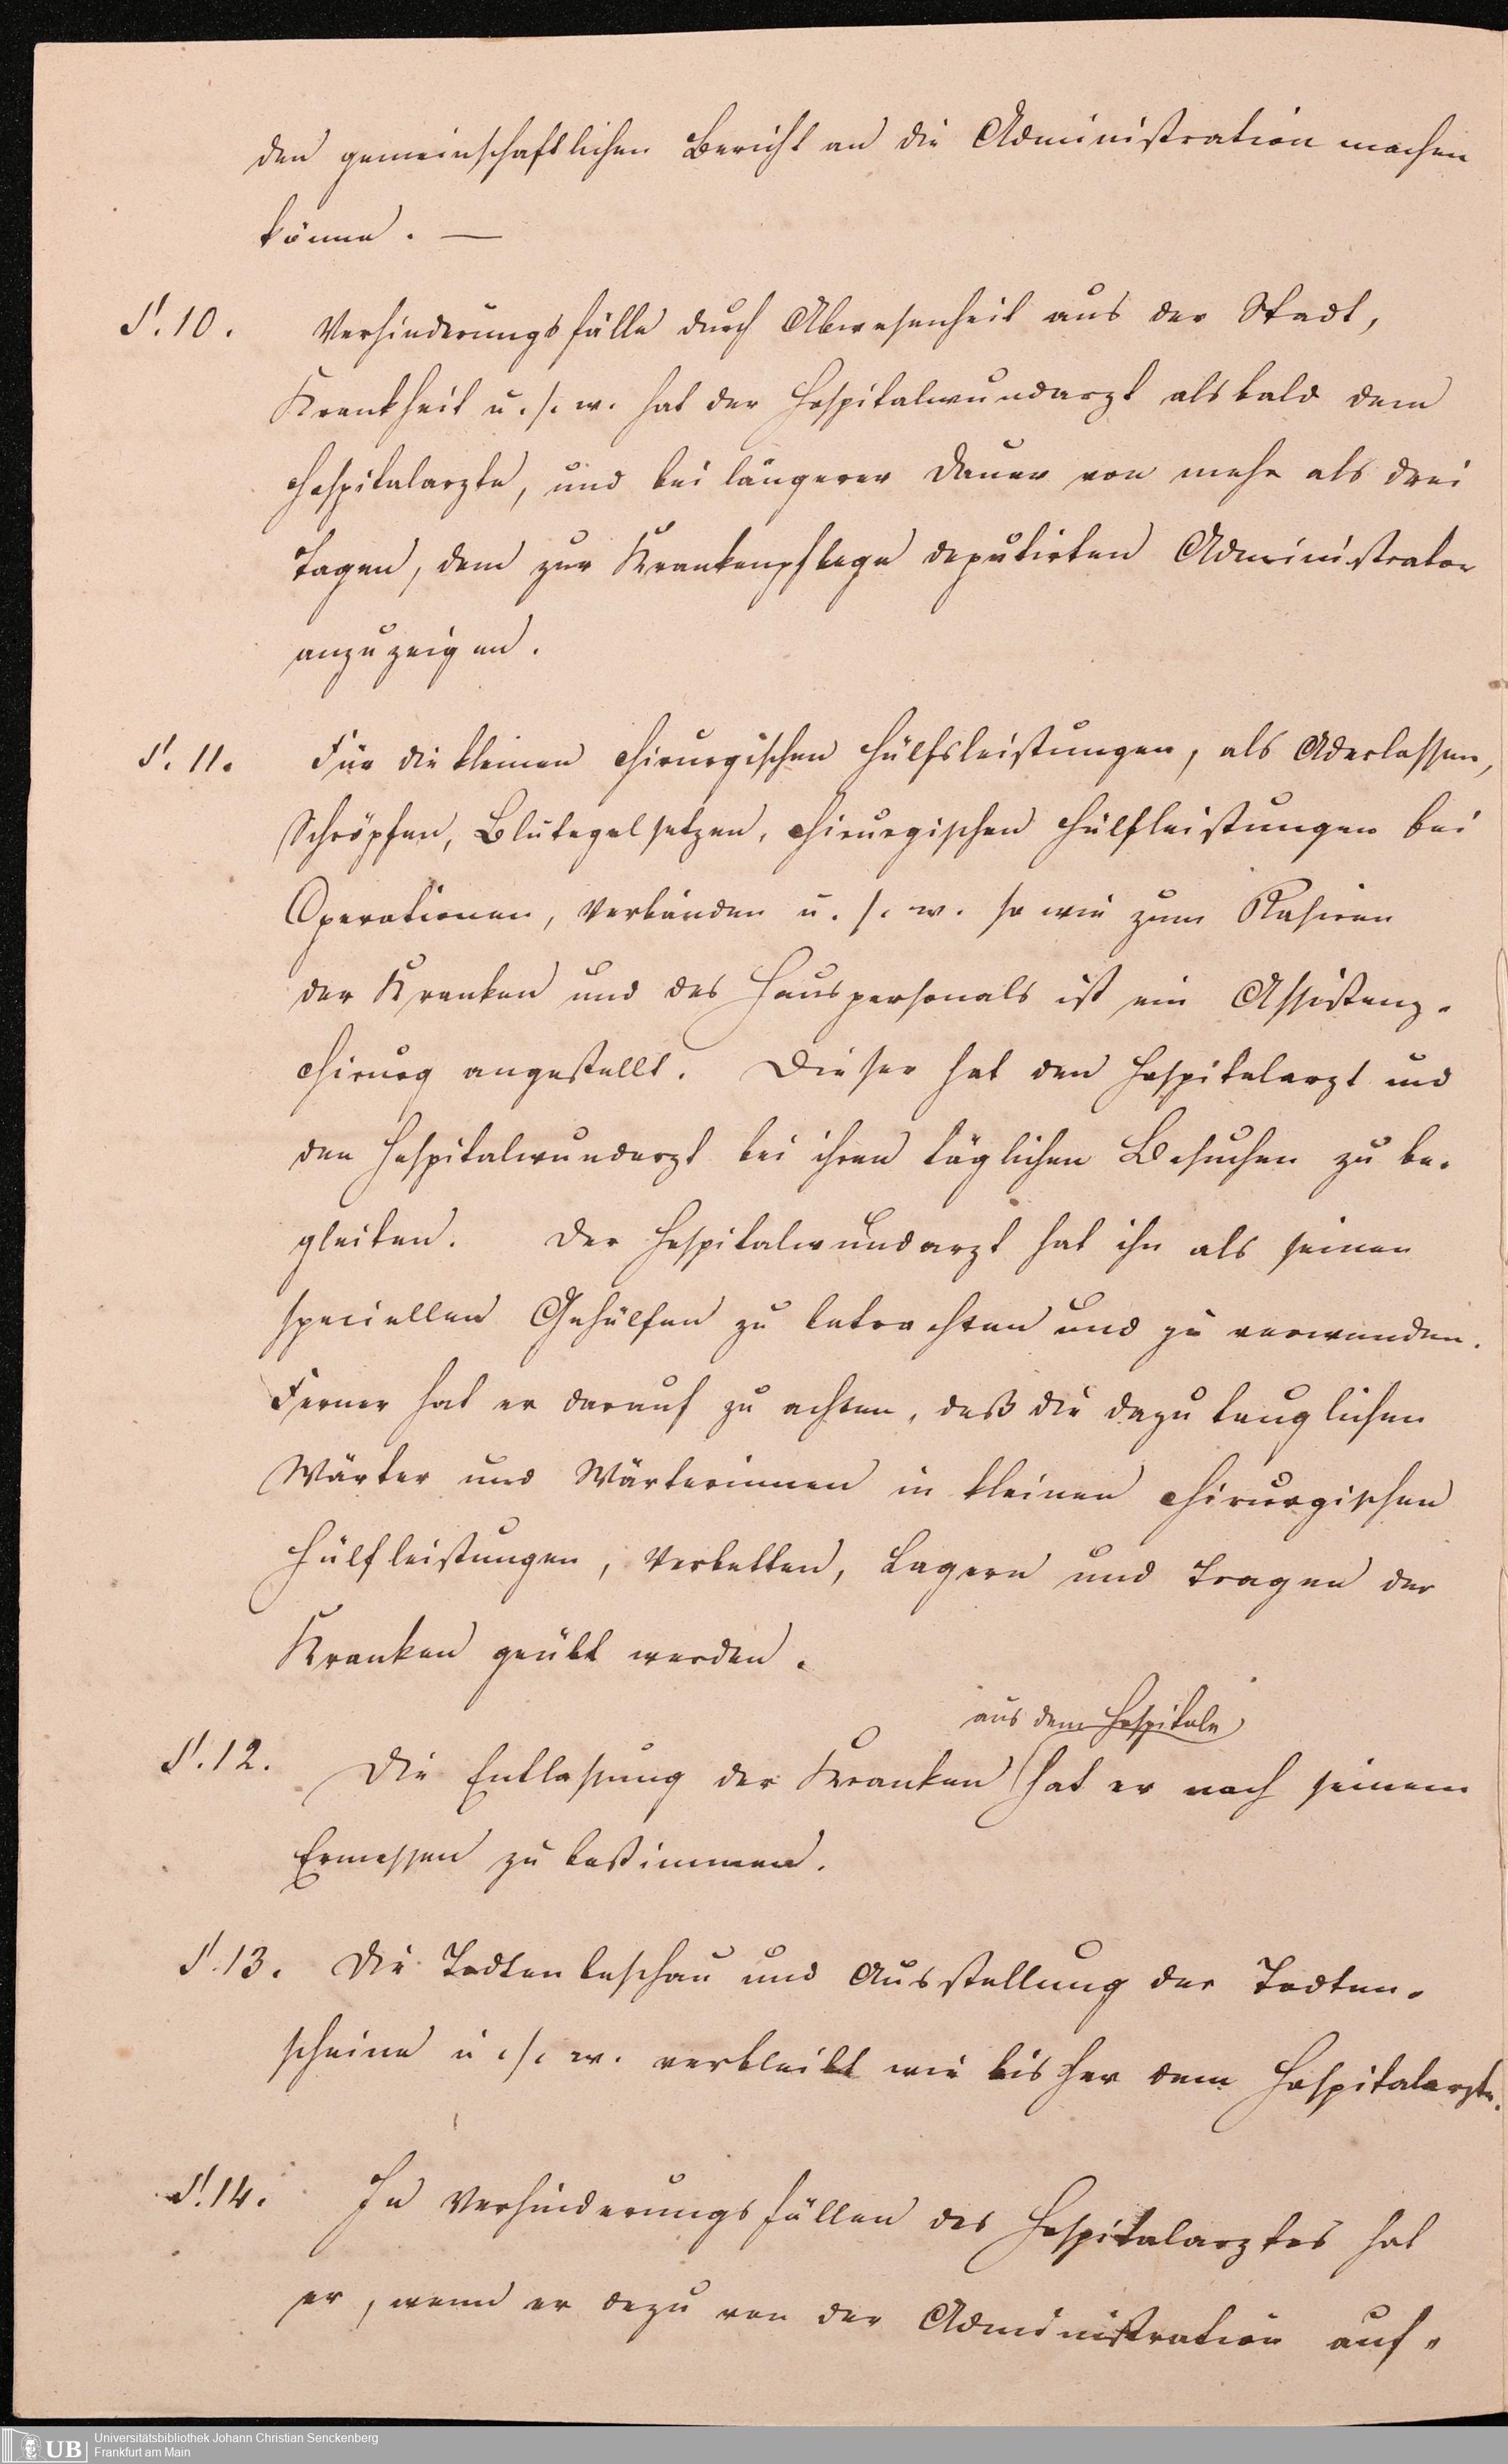 den gemeinschaftlichen Bericht an die Administration machen
könne. —
§. 10. Verhinderungsfälle durch Abwesenheit aus der Stadt,
Krankheit u. s. w. hat der Hospitalwundarzt alsbald dem
Hospitalarzte, und bei längerer Dauer von mehr als drei
Tagen, dem zur Krankenpflege deputirten Administrator
anzuzeigen.
§. 11. Für die kleinen chirurgischen Hülfsleistungen, als Aderlassen,
Schröpfen, Blutegelsetzen, chirurgischen Hülfleistungen bei
Operationen, Verbänden u. s. w. so wie zum Rasiren
der Kranken und des Hauspersonals ist ein Assistenz-
chirurg angestellt. Dieser hat den Hospitalarzt und
den Hospitalwundarzt bei ihren täglichen Besuchen zu be-
gleiten. Der Hospitalwundarzt hat ihn als seinen
speciellen Gehülfen zu betrachten und zu verwenden.
Ferner hat er darauf zu achten, daß die dazu tauglichen
Wärter und Wärterinnen in kleinen chirurgischen
Hülfleistungen, Verbetten, Lagern und Tragen der
Kranken geübt werden.
aus dem Hospitale
§. 12. Die Entlassung der Kranken hat er nach seinem
Ermessen zu bestimmen.
§. 13. Die Todtenbeschau und Ausstellung der Todten-
scheine u. s. w. verbleibt wie bisher dem Hospitalarzte.
§. 14. In Verhinderungsfällen des Hospitalarztes hat
er, wenn er dazu von der Administration auf-
UB
Universitätsbibliothek Johann Christian Senckenberg
Frankfurt am Main